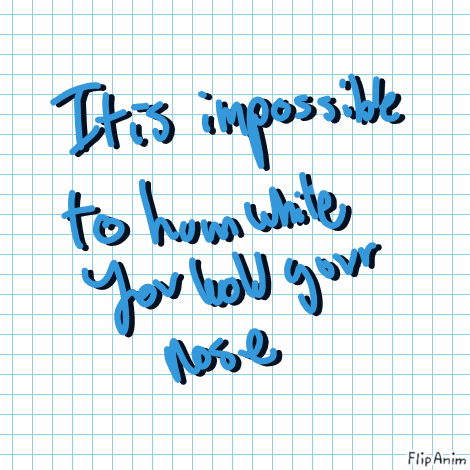 It is impossible
to hum while
you hold your
nose
FlipAnim